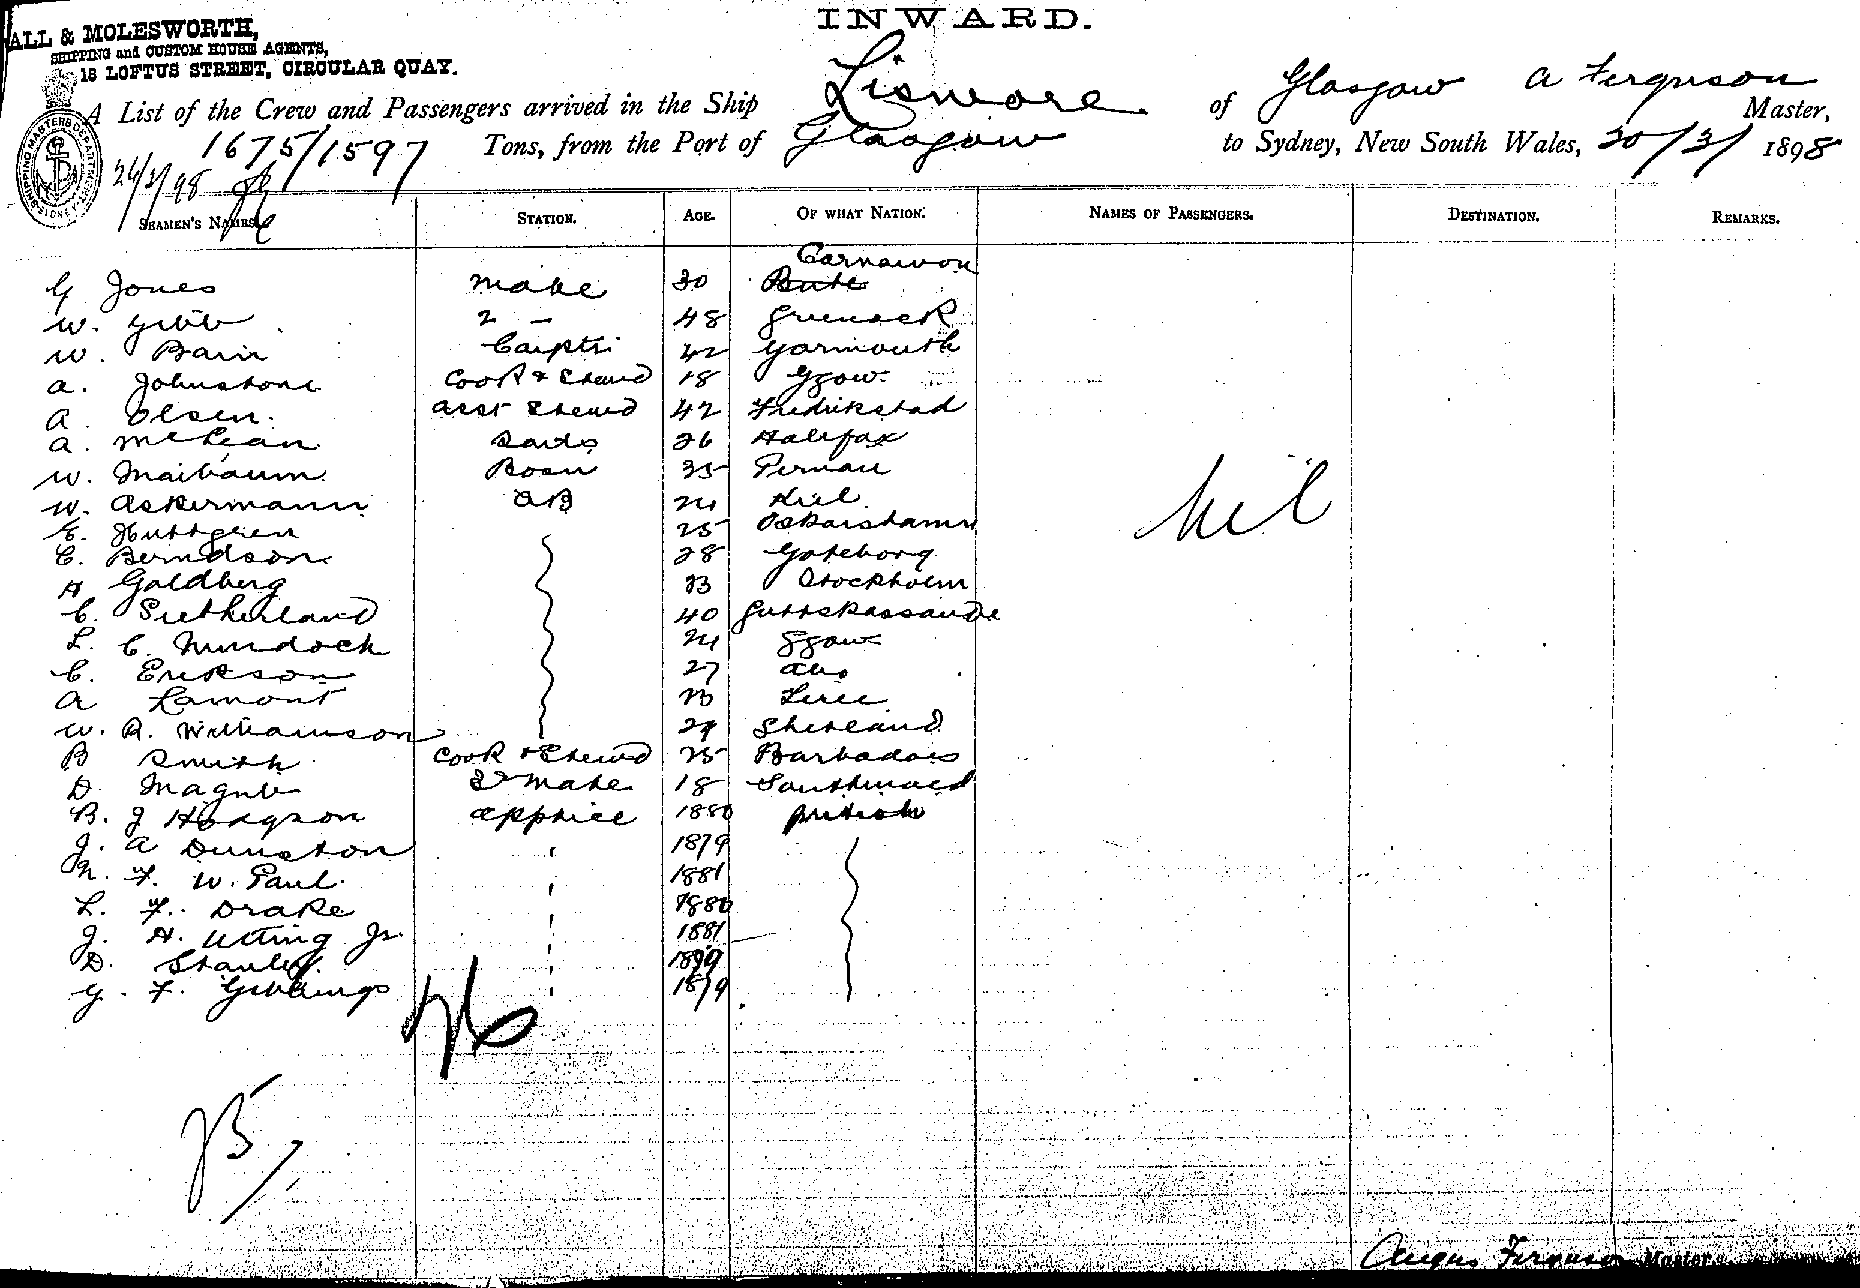 INWARD.
ALL & MOLESWORTH,
SHIPPING and CUSTOM HOUSE AGENTS,
18 LOFTUS STREET, CIRCULAR QUAY.
A List of the Crew and Passengers arrived in the Ship Lismore of Glasgow A Ferguson Master,
1675/1597 Tons, from the Port of Glasgow to Sydney, New South Wales, 20/3/ 1898
SEAMEN'S NAMES. STATION. AGE. OF WHAT NATION. NAMES OF PASSENGERS. DESTINATION. REMARKS.
Carnarvon
G Jones Mate 30 Bute
W. Gibb 2 - 48 Greenock
W. Bain 42 Yarmouth
A. Johnstone Cook & Stewd 18 Ggow.
A Olsen. Asst Stewd 42 Fredrikstad
A. McLean Sails 26 Halifax
W. Maibaum Bosn 35 Pernau
W. Askermann AB 24 Kiel
E. Huttgren 25 Oskarshamn
C. Berndson 28 Goteborg
A Goldberg 23 Stockholm
C. Sutherland 40
L. C. Murdoch 24 Ggow
C. Erikson 27 Abo
A Lamont
W. R. Williamson 29 Shetland
B Smith Cook & Stewd 25 Barbados
D. 3rd Mate 18
B. J Hodgson Apptice 1880 British
J. A Dunston " 1879
N. F. W. Paul. " 1881
L. F. Drake " 1880
J. H. Utting Jr. " 1881
D. Stanley. "
G. F. Giblings " 1879
Nil
26
25/
Angus Ferguson Master